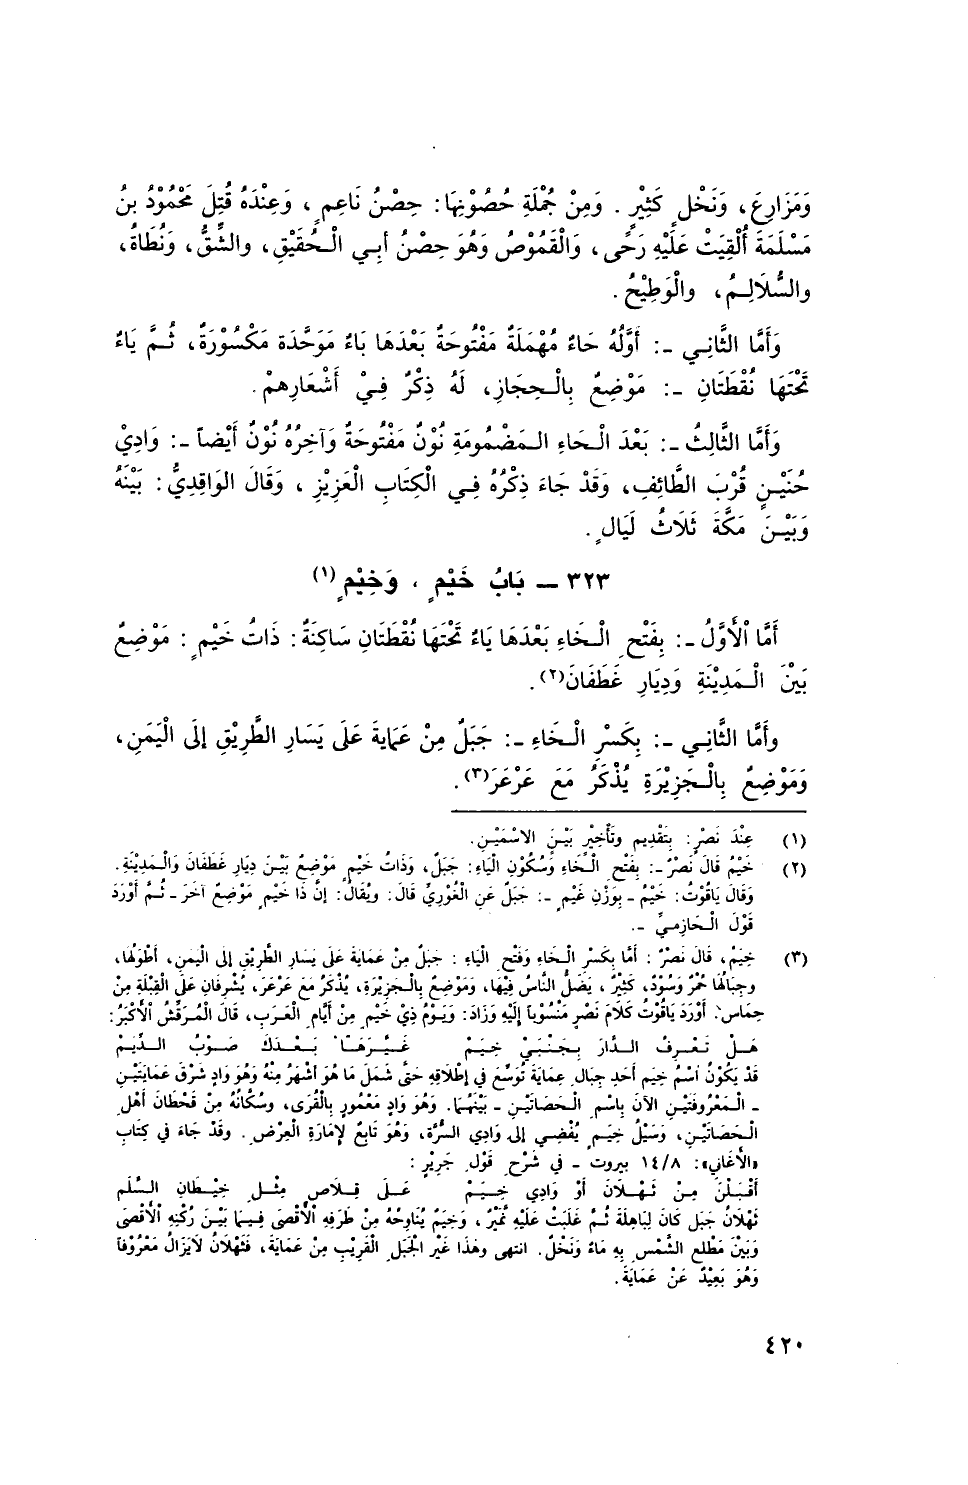 وَمَزَارِعَ، وَنَخْلٍ كَثِيْرٍ. وَمِنْ جُمْلَةِ حُصُوْنِهَا: حِصْنُ نَاعِمٍ، وَعِنْدَهُ قُتِلَ مَحْمُوْدُ بنُ
مَسْلَمَةَ أُلْقِيَتْ عَلَيْهِ رَحًى، وَالْقَمُوْصُ وَهُوَ حِصْنُ أَبِي الْحُقَيْقِ، والشِّقُّ، وَنُطَاةُ،
والسُّلَالِمُ، والْوَطِيْحُ.
وَأَمَّا الثَّانِي -: أَوَّلُهُ حَاءٌ مُهْمَلَةٌ مَفْتُوحَةٌ بَعْدَهَا بَاءٌ مَوَحَّدَة مَكْسُوْرَةٌ، ثُمَّ يَاءٌ
تَحْتَهَا نُقْطَتَانِ -: مَوْضِعٌ بِالْحِجَازِ، لَهُ ذِكْرٌ فِيْ أَشْعَارِهِمْ.
وَأَمَّا الثَّالِثُ -: بَعْدَ الْحَاءِ الْمَضْمُومَةِ نُوْنٌ مَفْتُوحَةٌ وَآخِرُهُ نُوْنٌ أَيْضاً -: وَادِيْ
حُنَيْنٍ قُرْبَ الطَّائِفِ، وَقَدْ جَاءَ ذِكْرُهُ فِي الْكِتَابِ الْعَزِيْزِ، وَقَالَ الوَاقِدِيُّ: بَيْنَهُ
وَبَيْنَ مَكَّةَ ثَلَاثُ لَيَالٍ.
٣٢٣ - بَابُ خَيْمٍ، وَخِيْمٍ (١)
أَمَّا الْأَوَّلُ -: بِفَتْحِ الْخَاءِ بَعْدَهَا يَاءٌ تَحْتَهَا نُقْطَتَانِ سَاكِنَةٌ: ذَاتُ خَيْمٍ: مَوْضِعٌ
بَيْنَ الْمَدِيْنَةِ وَدِيَارِ غَطَفَانَ(٢).
وأَمَّا الثَّانِي -: بِكَسْرِ الْخَاءِ -: جَبَلٌ مِنْ عَمَايَةَ عَلَى يَسَارِ الطَّرِيْقِ إِلَى الْيَمَنِ،
وَمَوْضِعٌ بِالْجَزِيْرَةِ يُذْكَرُ مَعَ عَرْعَرَ(٣).
(١) عِنْدَ نَصْرٍ: بِتَقْدِيمٍ وتَأْخِيْرٍ بَيْنَ الاسْمَيْنِ.
(٢) خَيْمُ قَالَ نَصْرٌ -: بِفَتْحِ الْخَاءِ وَسُكُوْنِ الْيَاءِ: جَبَلٌ، وَذَاتُ خَيْمٍ مَوْضِعٌ بَيْنَ دِيَارِ غَطَفَانَ وَالْمَدِيْنَةِ.
وَقَالَ يَاقُوْتُ: خَيْمٌ - بِوَزْنِ غَيْمٍ -: جَبَلٌ عَنِ الْغُوْرِيِّ قَالَ: وَيُقَالُ: إِنَّ ذَا خَيْمٍ مَوْضِعٌ آخَرَ - ثُمَّ أَوْرَدَ
قَوْلَ الْحَازِمِيِّ -.
(٣) خِيَمٌ، قَالَ نَصْرٌ: أَمَّا بِكَسْرِ الْخَاءِ وَفَتْحِ الْيَاءِ: جَبَلٌ مِنْ عَمَايَةَ عَلَى يَسَارِ الطَّرِيْقِ إِلَى الْيَمَنِ، أَطْوَلُهَا،
وجِبَالُهَا حُمْرٌ وَسُوْدٌ، كَثِيْرٌ، يَضَلُّ النَّاسُ فِيْهَا، وَمَوْضِعٌ بِالْجَزِيْرَةِ، يُذْكَرُ مَعَ عَرْعَرَ، يُشْرِفَانِ عَلَى الْقِبْلَةِ مِنْ
حِمَاسٍ. أَوْرَدَ يَاقُوْتُ كَلَامَ نَصْرٍ مَنْسُوْباً إِلَيْهِ وَزَادَ: وَيَوْمُ ذِيْ خَيْمٍ مِنْ أَيَّامِ الْعَرَبِ، قَالَ الْمُرَقِّشُ الْأَكْبَرُ:
هَلْ تَعْرِفُ الدَّارَ بِجَنْبَيْ خِيَمْ غَيَّرَهَا بَعْدَكَ صَوْبُ الدِّيَمْ
قَدْ يَكُوْنُ اسْمُ خِيَمٍ أَحَدِ جِبَالِ عِمَايَةَ تُوُسِّعَ فِي إِطْلَاقِهِ حَتَّى شَمَلَ مَا هُوَ أَشْهَرُ مِنْهُ وَهُوَ وَادٍ شَرْقَ عَمَايَتَيْنِ
- الْمَعْرُوفَتَيْنِ الآنَ بِاسْمِ الْحَصَاتَيْنِ - بَيْنَهُمَا. وَهُوَ وَادٍ مَعْمُورٍ بِالْقُرَى، وَسُكَّانُهُ مِنْ قَحْطَانَ أَهْلِ
الْحَصَاتَيْنِ، وَسَيْلُ خِيَمٍ يُفْضِي إِلى وَادِي السُّرَّةِ، وَهُوَ تَابِعٌ لِإِمَارَةِ الْعِرْضِ. وَقَدْ جَاءَ فِي كِتَابِ
«الأَغَانِي»: ١٤/٨ بيروت - فِي شَرْحِ قَوْلِ جَرِيْرٍ:
أَقْبَلْنَ مِنْ ثَهْلَانَ أَوْ وَادِي خِيَمْ عَلَى قِلَاصٍ مِثْلِ خِيْطَانِ السَّلَمِ
ثَهْلَانُ جَبَل كَانَ لِبَاهِلَةَ ثُمَّ غَلَبَتْ عَلَيْهِ نُمَيْرٌ، وَخِيَمٌ يُنَاوِحُهُ مِنْ طَرَفِهِ الْأَقْصَى فِيمَا بَيْنَ رُكْنِهِ الْأَقْصَى
وَبَيْنَ مَطْلِعِ الشَّمْسِ بِهِ مَاءٌ وَنَخْلٌ. انتهى وهْذَا غَيْر الْجَبَلِ الْقَرِيْبِ مِنْ عَمَايَةَ، فَثَهْلَانُ لَايَزَالُ مَعْرُوْفاً
وَهُوَ بَعِيْدٌ عَنْ عَمَايَةَ.
٤٢٠